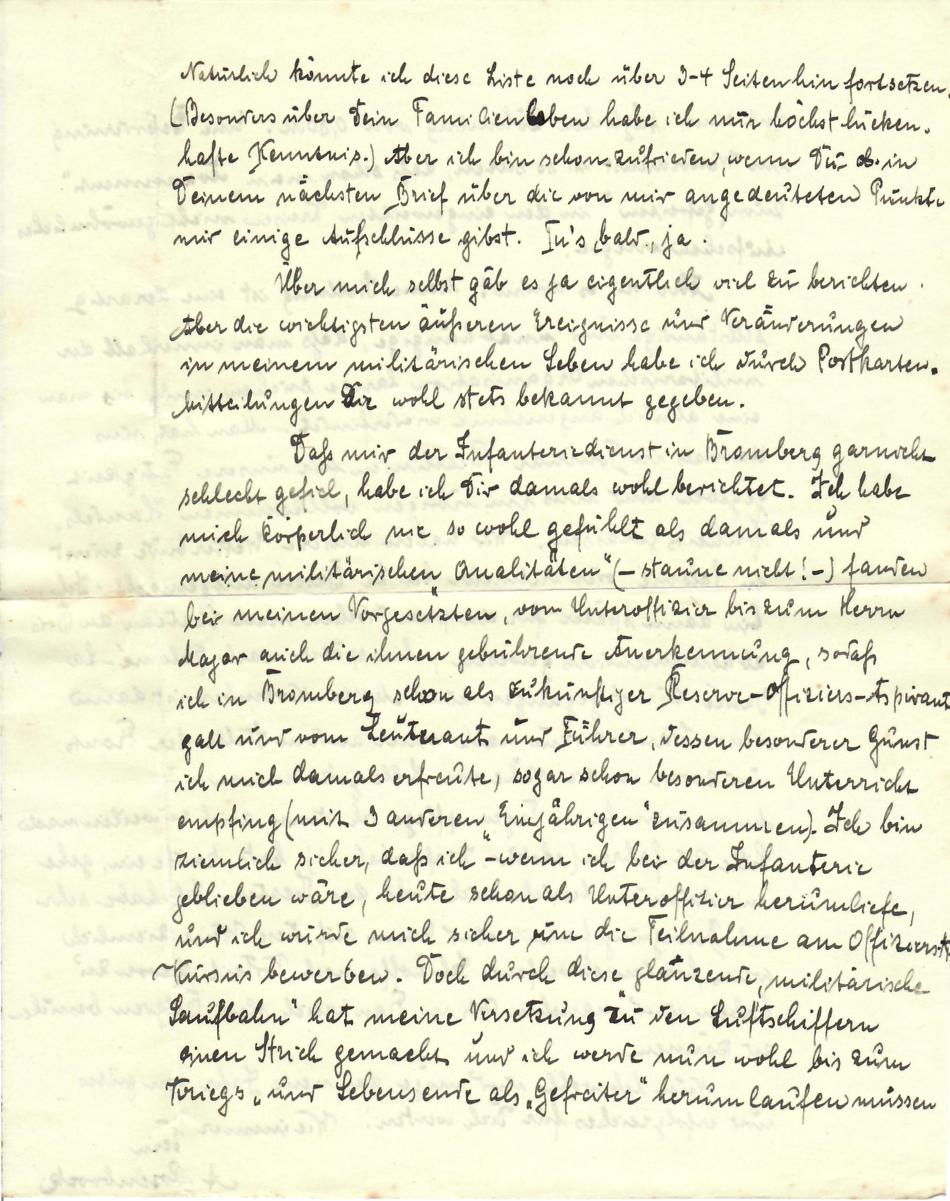 Natürlich könnte ich diese Liste noch über 3-4 Seiten hin fortsetzen.
(Besonders über Dein Familienleben habe ich nur höchst lücken-
hafte Kenntnis.) Aber ich bin schon zufrieden, wenn Du in
Deinem nächsten Brief über die von mir angedeuteten Punkte
mir einige Aufschlüsse gibst. Tu's bald, ja.
Über mich selbst gäb es ja eigentlich viel zu berichten.
Aber die wichtigsten äußeren Ereignisse und Veränderungen
in meinem militärischen Leben habe ich durch Postkarten-
mitteilungen Dir wohl stets bekannt gegeben.
Daß mir der Infanteriedienst in Bromberg garnicht
schlecht gefiel, habe ich Dir damals wohl berichtet. Ich habe
mich körperlich nie so wohl gefühlt als damals und
meine „militärischen Qualitäten“ (- staune nicht! -) fanden
bei meinen Vorgesetzten, vom Unteroffizier bis zum Herrn
Major auch die ihnen gebührende Anerkennung, sodaß
ich in Bromberg schon als zukünftiger Reserve-Offiziers-Aspirant
galt und vom Leutenant und Führer, dessen besonderer Gunst
ich mich damals erfreute, sogar schon besonderen Unterricht
empfing (mit 3 anderen „Einjährigen“ zusammen). Ich bin
ziemlich sicher, daß ich - wenn ich bei der Infanterie
geblieben wäre, heute schon als Unteroffizier herumliefe,
und ich würde mich sicher um die Teilnahme am Offiziers-
Kursus bewerben. Doch durch diese glänzende „militärische
Laufbahn“ hat meine Versetzung zu den Luftschiffern
einen Strich gemacht und ich werde nun wohl bis zum
Kriegs- und Lebensende als „Gefreiter“ herumlaufen müssen